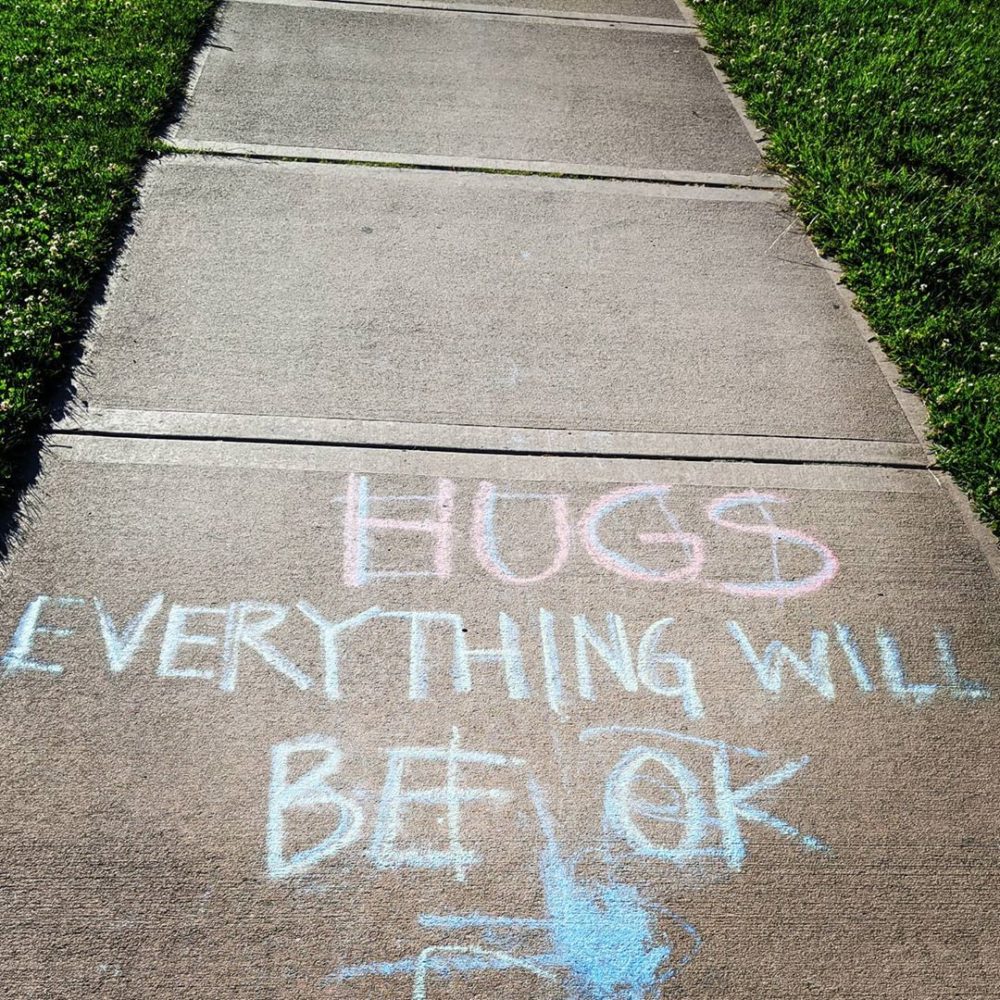 HUGS
EVERYTHING WILL
BE OK